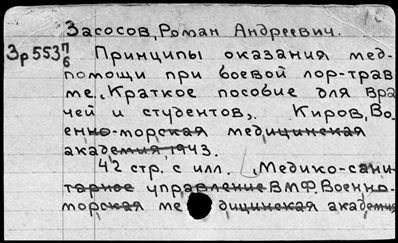 Засосов, Роман Андреевич.
Зр553 7/6 Принципы оказания мед-
помощи при боевой лор-трав
ме. Краткое пособие для вра
чей и студентов. Киров, Во-
енно-морская медицинская
академия, 1943.
42 стр. с илл. (Медико-сани-
тарное управление ВМФ. Военно-
морская медицинская академия